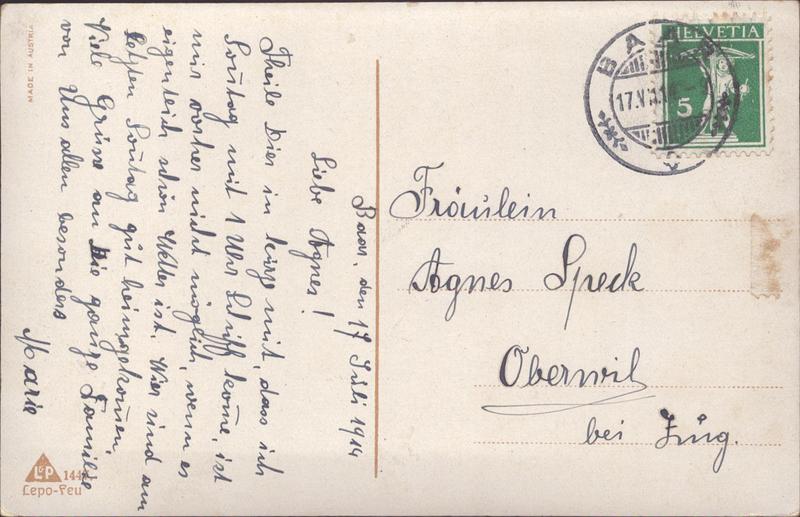 Baar, den 17 Juli 1914
Liebe Agnes!
Theile Dier in kurze mit, dass ich
Sontag mit 1 Uhr Schiff kome, ist
mir vorher nicht möglich, wenn es
eigentlich schön Wetter ist. Wier sind am
letzten Sontag gut heimgekomen.
Viele Grüsse an Die ganze Familie
von Uns allen besonders
Marie
Fräulein
Agnes Speck
Oberwil
bei Zug.
HELVETIA
5
BAAR
17.V
MADE IN AUSTRIA
L&P
144
Lepo-Feu